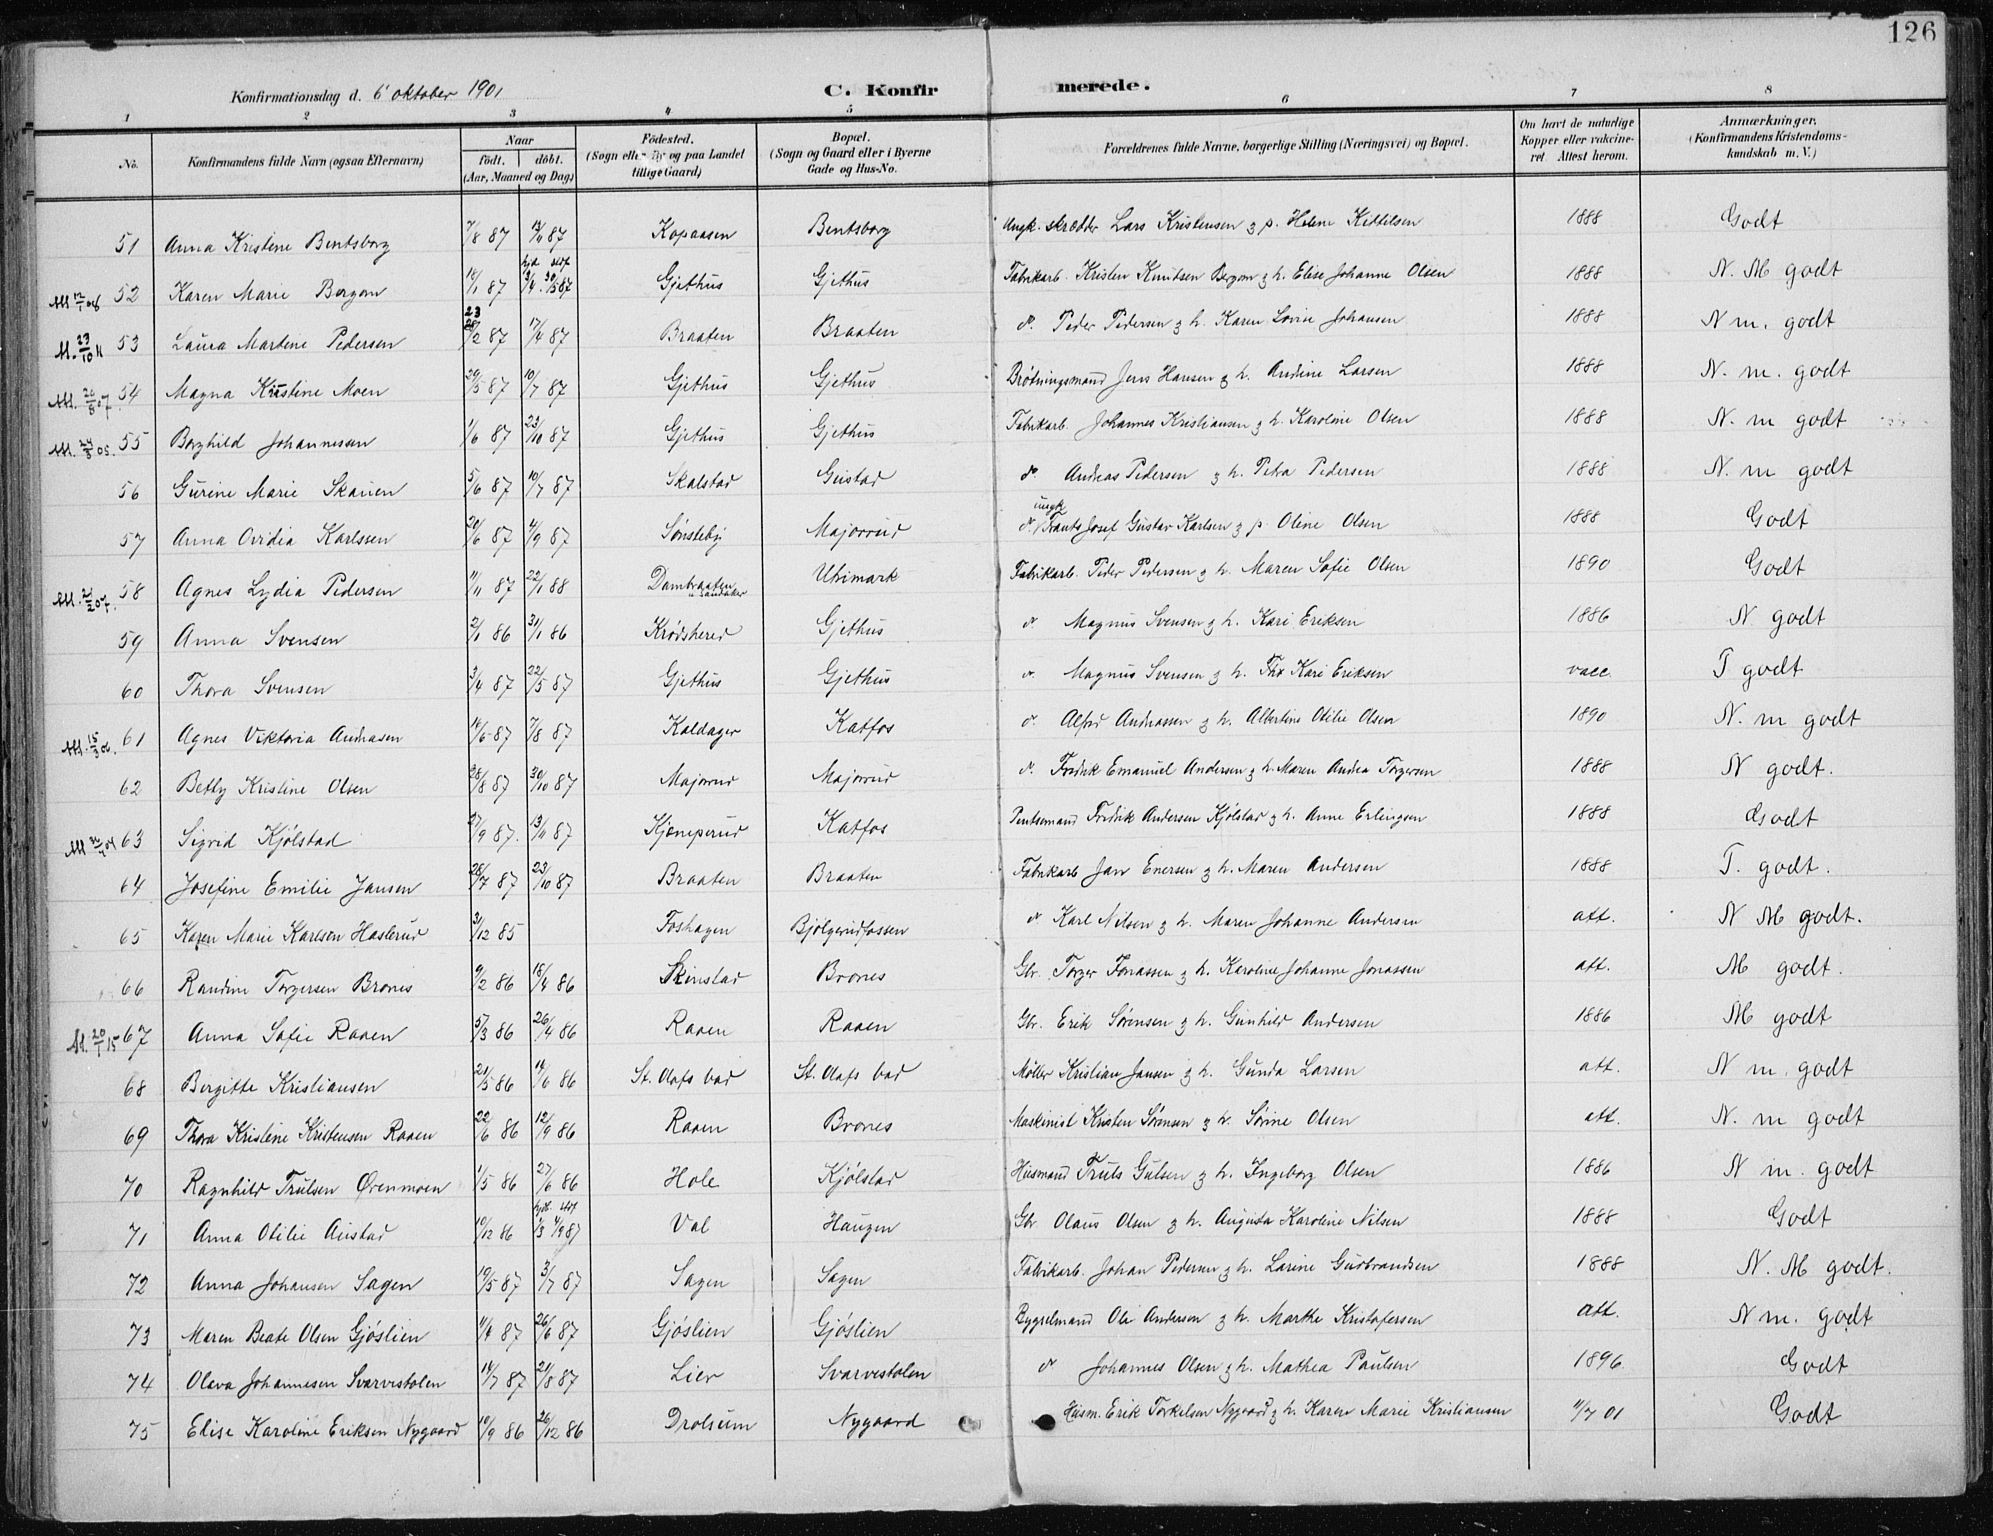 126
Konfirmationsdag d. 6' oktober 1901 C. Konfirmerede.
1 2 3 4 5 6 7 8
No. Konfirmandens fulde Navn (ogsaa Efternavn) Naar födt. döbt. (Aar, Maaned og Dag) Födested. (Sogn eller By og paa Landet tillige Gaard) Bopæl. (Sogn og Gaard eller i Byerne Gade og Hus-No. Forældrenes fulde Navne, borgerlige Stilling (Næringsvei) og Bopæl. Om havt de naturlige Kopper eller vakcineret Attest herom. Anmærkninger. (Konfirmandens Kristendomskundskab m. V.)
51 Anna Kristine Bentsborg 7/8 87 87 Kopaasen Bentsborg Ungk. skrædder Lars Kristensen g p. Helene Kittelsen 1888 Godt
52 Karen Marie Bergom 14/1 87 Gjethus Gjethus Fabrikarb. Kristen Knutsen Bergom g h. Elise Johanne Olsen 1888 N. M godt
M. 23/10 11 53 Laura Martine Pedersen 23/2 87 17/4 87 Braaten Braaten do. Peder Pedersen g h. Karen Lovise Johansen 1888 N m. godt
M. 20/8 07. 54 Magna Kristine Moen 29/5 87 10/7 87 Gjethus Gjethus Brötningsmand Jens Hansen g h. Andine Larsen 1888 N. m. godt
M. 24/3 05. 55 Borghild Johannessen 1/6 87 23/10 87 Gjethus Gjethus Fabrikarb. Johannes Kristiansen g h. Karoline Olsen 1888 N. m godt
56 Gurine Marie Skauen 5/6 87 10/7 87 Skalstad Gustad do. Andreas Pedersen g h. Petra Pedersen 1888 N. m godt
57 Anna Ovidia Karlsen 20/6 87 4/9 87 Sønsteby Majorrud do. ungk Frants Josef Gustav Karlsen g p Oline Olsen 1888 Godt
M. 2/2 07. 58 Agnes Lydia Pedersen 11/11 87 22/1 88 Dambraaten u Sandaker Utimark Fabrikarb. Peder Pedersen g h. Maren Sofie Olsen 1890 Godt
59 Anna Svensen 2/1 86 31/1 86 Krødshered Gjethus do. Magnus Svensen g h. Kari Eriksen 1886 N godt
60 Thora Svensen 3/4 87 22/5 87 Gjethus Gjethus do. Magnus Svensen g h. Kari Eriksen vacc. T godt
M. 15/3 06. 61 Agnes Viktoria Andrasen 14/6 87 7/8 87 Kaldager Katfos do. Alfred Andreassen g h. Albertine Otilie Olsen 1890 N. m godt
62 Betly Kristine Olsen 28/8 87 30/10 87 Majorrud Majorrud do. Fredrik Emanuel Andersen g h. Maren Andrea Torgersen 1888 N godt.
63 Sigrid Kjölstad 27/9 87. 13/11 87 Kjæneperud Katfos Fredrik Andersen Kjölstad g h. Anne Erlingsen 1888 Godt
64 Josefine Emilie Jansen 28/7 87 23/10 87 Braaten Braaten Fabrikarb Jan Enersen g h. Maren Andersen 1888 T. godt.
65 Karen Marie Karlsen Haslerud 3/12 85 Foshagen Bjölgerudfossen do. Karl Nilsen g h. Maren Johanne Andersen att. N M godt.
66 Randine Torgersen Brones 9/2 86 18/4 86 Skinstad Brones Gbr. Torger Jonassen g h. Karoline Johanne Jonassen att. M godt.
M. 20/1 15 67 Anna Sofie Raaen 5/3 86 26/4 86 Raaen Raaen Gbr. Erik Sørensen g h. Gunhild Andersen 1886 M godt
68 Birgitte Kristiansen 21/5 86 14/6 86 St. Olafs bad St. Olafs bad Møller Kristian Jansen g h. Gunda Larsen att. N m. godt
69 Thora Kristine Kristensen Raaen 22/6 86 12/9 86 Raaen Brones Maskinist Kristen Sørensen g h. Sørine Olsen att. N. m godt
70 Ragnhild Trulsen Ørenmoen 1/5 86 27/6 86 Hole Kjölstad Husmand Truls Gulsen g h. Ingeborg Olsen 1886 N m. godt
71 Anna Otilie Austad 10/12 86 Val Haugen Gbr Olaus Olsen g h. Augusta Karoline Nilsen 1888 Godt
72 Anna Johansen Sagen 19/5 87 3/7 87 Sagen Sagen Fabrikarb. Johan Pedersen g h. Larine Gudbrandsen 1888 N. M godt.
73 Maren Beate Olsen Gjöslien 11/4 87 26/6 87 Gjöslien Gjöslien Bygselmand Ole Andersen g h. Marthe Kristofersen att. N m. godt
74 Oleva Johannesen Svarvestolen 14/7 87 21/8 87 Lier Svarvestolen do. Johannes Olsen g h. Mathea Paulsen 1896. Godt
75 Elise Karoline Eriksen Nygaard 10/9 86 26/12 86 Drolsum Nygaard Husm. Erik Torkelsen Nygaard g h. Karen Marie Kristiansen 11/7 01 Godt